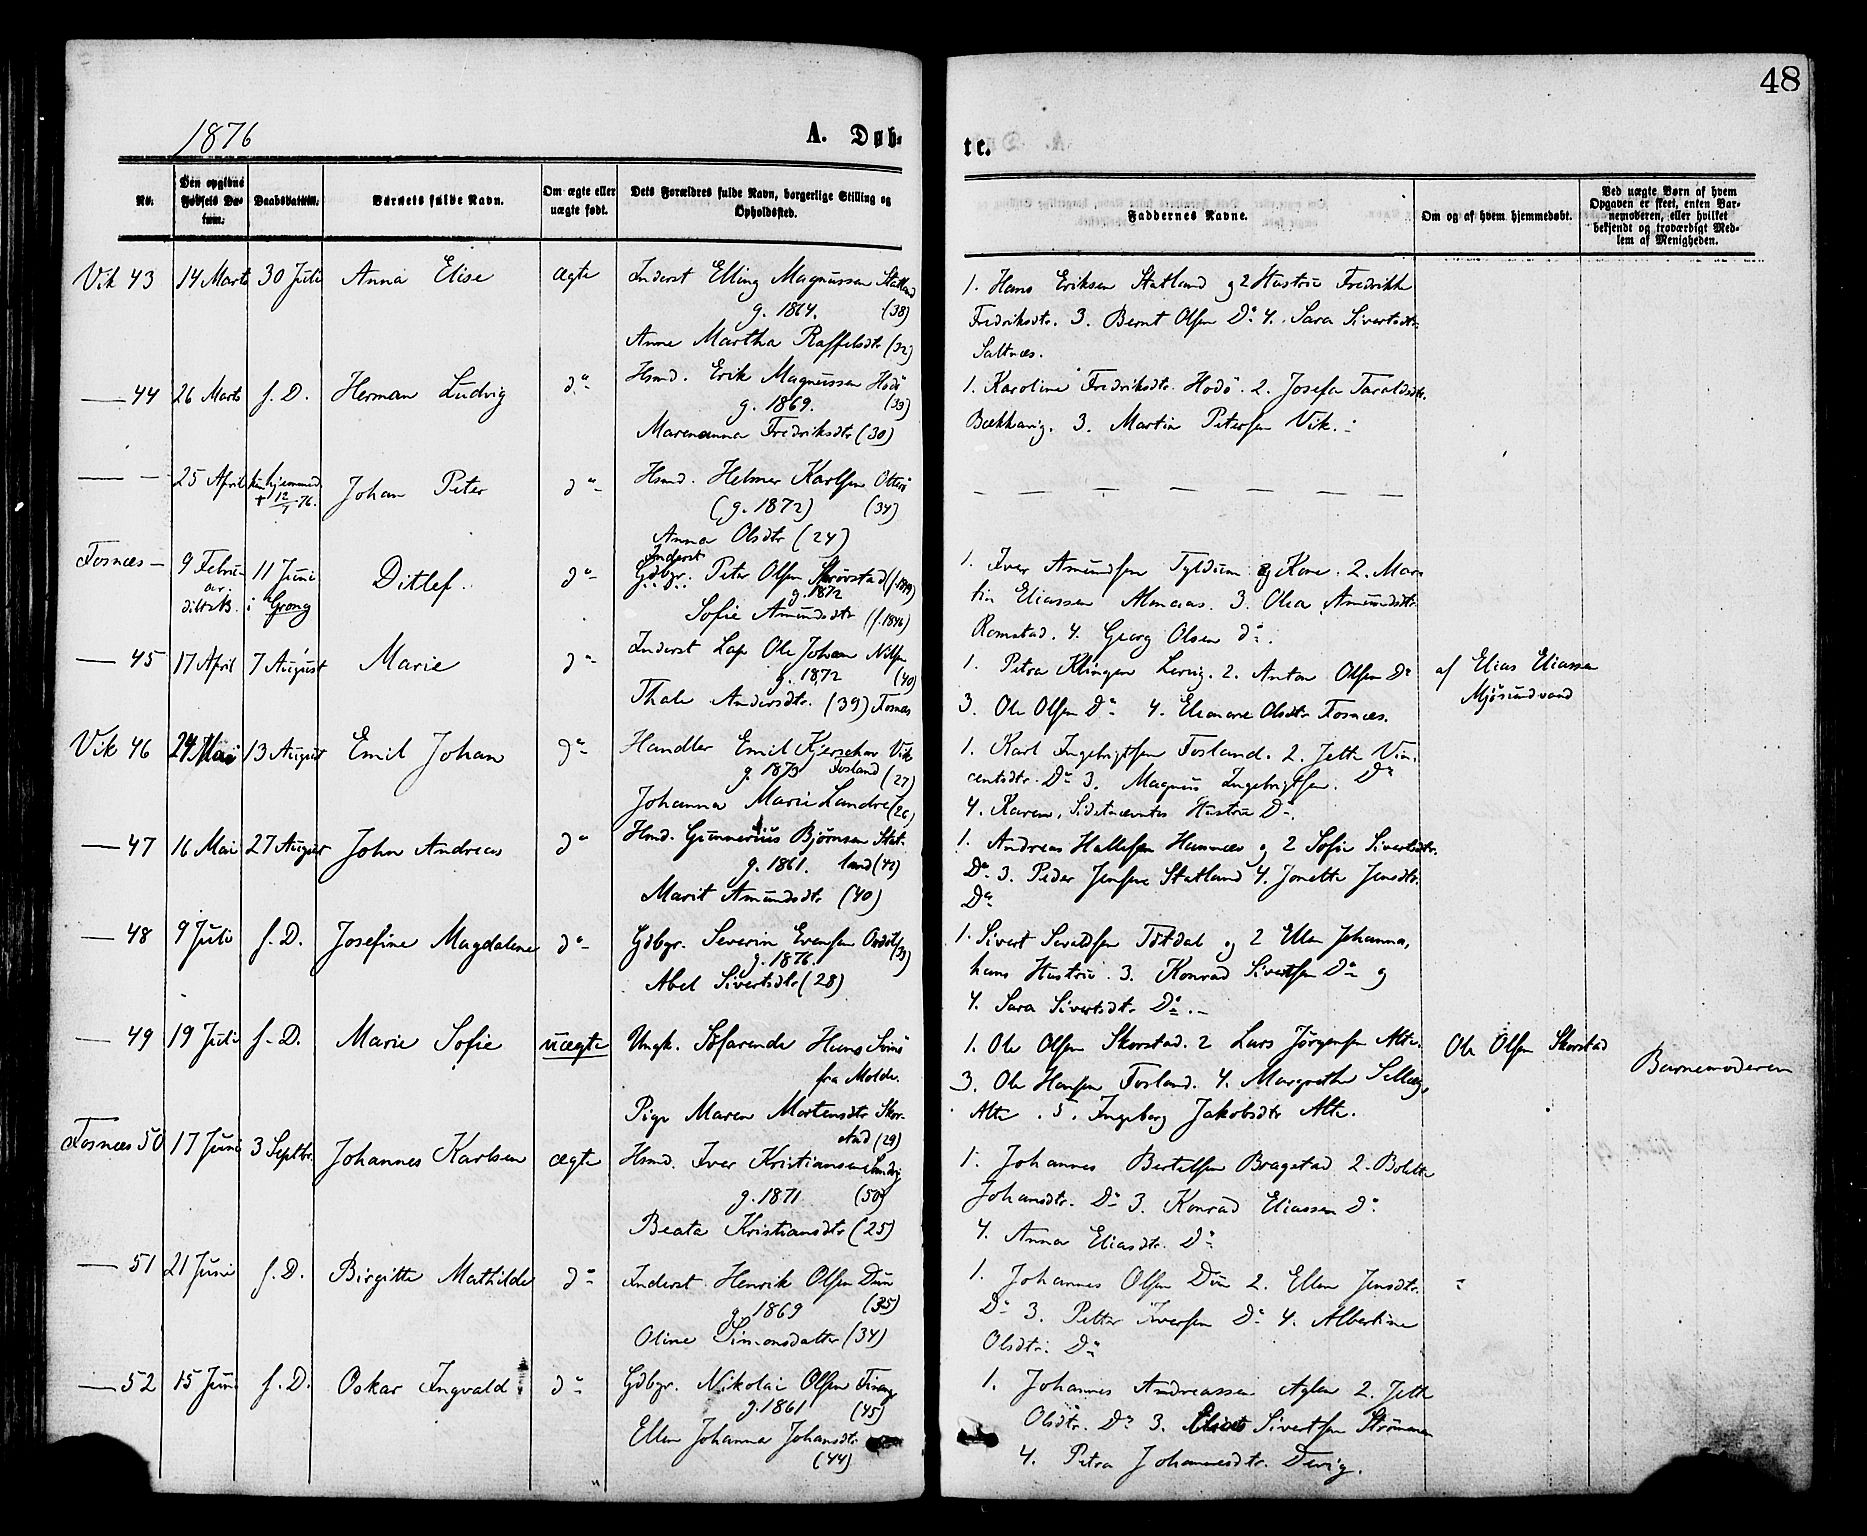 48
1876
A. Døb-
te.
No.
Den opgivne Fødsels Datum.
Daabsdatum.
Barnets fulde Navn.
Om ægte eller uægte født.
Dets Forældres fulde Navn, borgerlige Stilling og Opholdssted.
Faddernes Navne.
Om og af hvem hjemmedøbt.
Ved uægte Børn af hvem Opgaven er skeet, enten Barnemoderen, eller hvilket bekjendt og troværdigt Medlem af Menigheden.
Vik 43 14 Marts 30 Juli Anna Elise ægte Inderst Elling Magnussen Statland
g. 1864. (38)
Anne Martha Raffelsdtr (32)
1. Hans Eriksen Statland og 2 Hustru Fredrikke
Fredriksdtr. 3. Bernt Olsen Do 4. Sara Sivertsdtr
Saltnæs.
— 44 26 Marts s. D. Herman Ludvig do Hsmd. Erik Magnussen Hodö
g. 1869. (33)
Marenanna Fredriksdtr (30)
1. Karoline Fredriksdtr. Hodö. 2. Josefa Taraldsdtr.
Bækkavig. 3. Martin Petersen Vik.
— — 25 April hjemmed. † 12/7 76. Johan Peter do Hsmd. Helmer Karlsen Otterö
(g. 1872) (34)
Anna Olsdtr (24)
— — — — — — —
Fosnæs — 9 Februar 11 Juni i Grong Ditlef. do Inderst
Gdbgr. Peter Olsen
g. 1872
Sofie Amundsdtr (f. 1846)
1. Iver Amundsen Tyldum og Kone. 2. Mar-
tin Eliassen Almaas. 3. Olea Amundsdtr.
Romstad. 4. Georg Olsen do.
— 45 17 April 7 August Marie do Inderst Lap Ole Johan Nilsen
g. 1872 (40)
Thale Andersdtr. (39) Fosnæs
1. Petra Klingen Lervig. 2. Anton Olsen Do
3. Ole Olsen Do 4. Eleonore Olsdtr Fosnæs.
af Elias Eliassen
Mjösundvand
Vik 46 24 Mai 13 August Emil Johan do Handler Emil Kjerschov Vik
g. 1873 Fosland (27)
Johanna Marie Landre (26)
1. Karl Ingebrigtsen Fosland. 2. Jette Vin-
centsdtr. Do 3. Magnus Ingebrigtsen. Do
4. Karen, Sidstnævntes Hustru Do.
— 47 16 Mai 27 August John Andreas do Hsmd. Gunnerius Bjørnsen Stat-
g. 1861. land (42)
Marit Amundsdtr (40)
1. Andreas Hallesen Hemnæs og 2 Sofie Sivertsdtr.
Do. 3. Peder Jensen Statland 4. Jonette Jensdtr.
Do
— 48 9 Juli s. D. Josefine Magdalene do Gdbgr. Severin Evensen
g. 1876.
Abel Sivertsdtr (28)
1. Sivert Sivaldsen Tötdal og 2 Ellen Johanna,
hans Hustru. 3. Konrad Sivertsen Do og
4. Sara Sivertsdtr Do.
— 49 19 Juli s. D. Marie Sofie uægte Ungk. Söfarende Hans
fra Molde.
Pige Maren Mortensdtr Skor-
stad (29)
1. Ole Olsen Skorstad. 2 Lars Jørgensen Alte.
3. Ole Hansen Fosland. 4. Margrethe
Alte. 5. Ingeborg Jakobsdtr Alte.
Ole Olsen Skorstad
Barnemoderen
Fosnæs 50 17 Juni 3 Septbr. Johannes Karlsen ægte Hsmd. Iver Kristiansen Sandvig
g. 1871 (50)
Beata Kristiansdtr (25)
1. Johannes Bertelsen Bragstad 2. Bolette
Johansdtr. Do 3. Konrad Eliassen Do
4. Anna Eliasdtr. Do
— 51 21 Juni s. D. Birgitte Mathilde do Inderst Henrik Olsen Dun
g. 1869 (35)
Oline Simonsdatter (34)
1. Johannes Olsen Dun 2. Ellen Jensdtr.
Do 3. Petter Iversen Do 4. Albertine
Olsdtr. Do
— 52 15 Juni s. D. Oskar Ingvald do Gdbgr. Nikolai Olsen
g. 1861 (45)
Ellen Johanna Johansdtr.
(44)
1. Johannes Andreassen Aglen 2. Jette
Olsdtr. Do 3. Sivertsen Strømmen
4. Petra Johannesdtr. Devig.